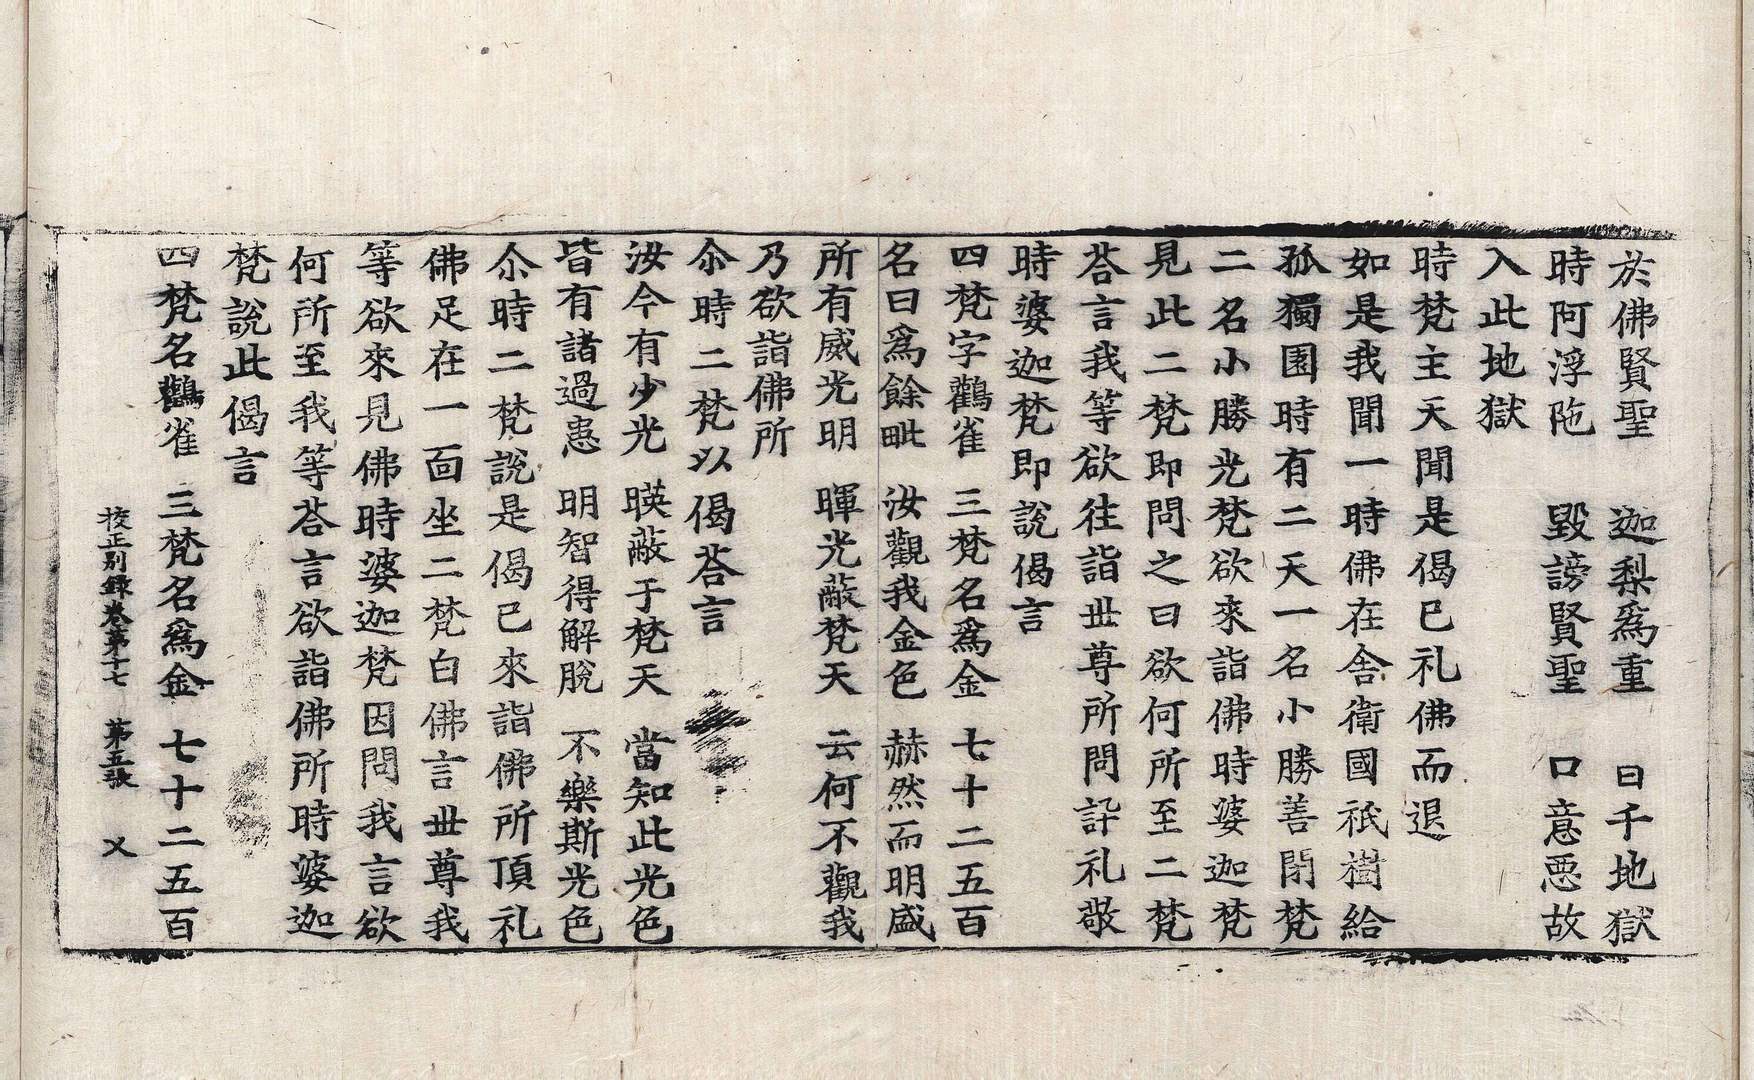 於佛賢聖　迦梨為重　曰千地獄
時阿浮陁　毀謗賢聖　口意惡故
入此地獄
時梵主天聞是偈已礼佛而退
如是我聞一時佛在舍衛國祇樹給
孤獨園時有二天一名小勝善閇梵
二名小勝光梵欲來詣佛時婆迦梵
見此二梵即問之曰欲何所至二梵
荅言我等欲往詣丗尊所問訊礼敬
時婆迦梵即說偈言
四梵字鸛雀　三梵名為金　七十二五百
名曰為餘毗　汝觀我金色　赫然而明盛
所有威光明　暉光蔽梵天　云何不觀我
乃欲詣佛所
尒時二梵以偈荅言
汝今有少光　暎蔽于梵天　當知此光色
皆有諸過患　明智得解脫　不樂斯光色
尒時二梵說是偈已來詣佛所頂礼
佛足在一面坐二梵白佛言丗尊我
等欲來見佛時婆迦梵因問我言欲
何所至我等荅言欲詣佛所時婆迦
梵說此偈言
四梵名鸛雀　三梵名為金　七十二五百
校正別錄卷第十七　第五張　乂